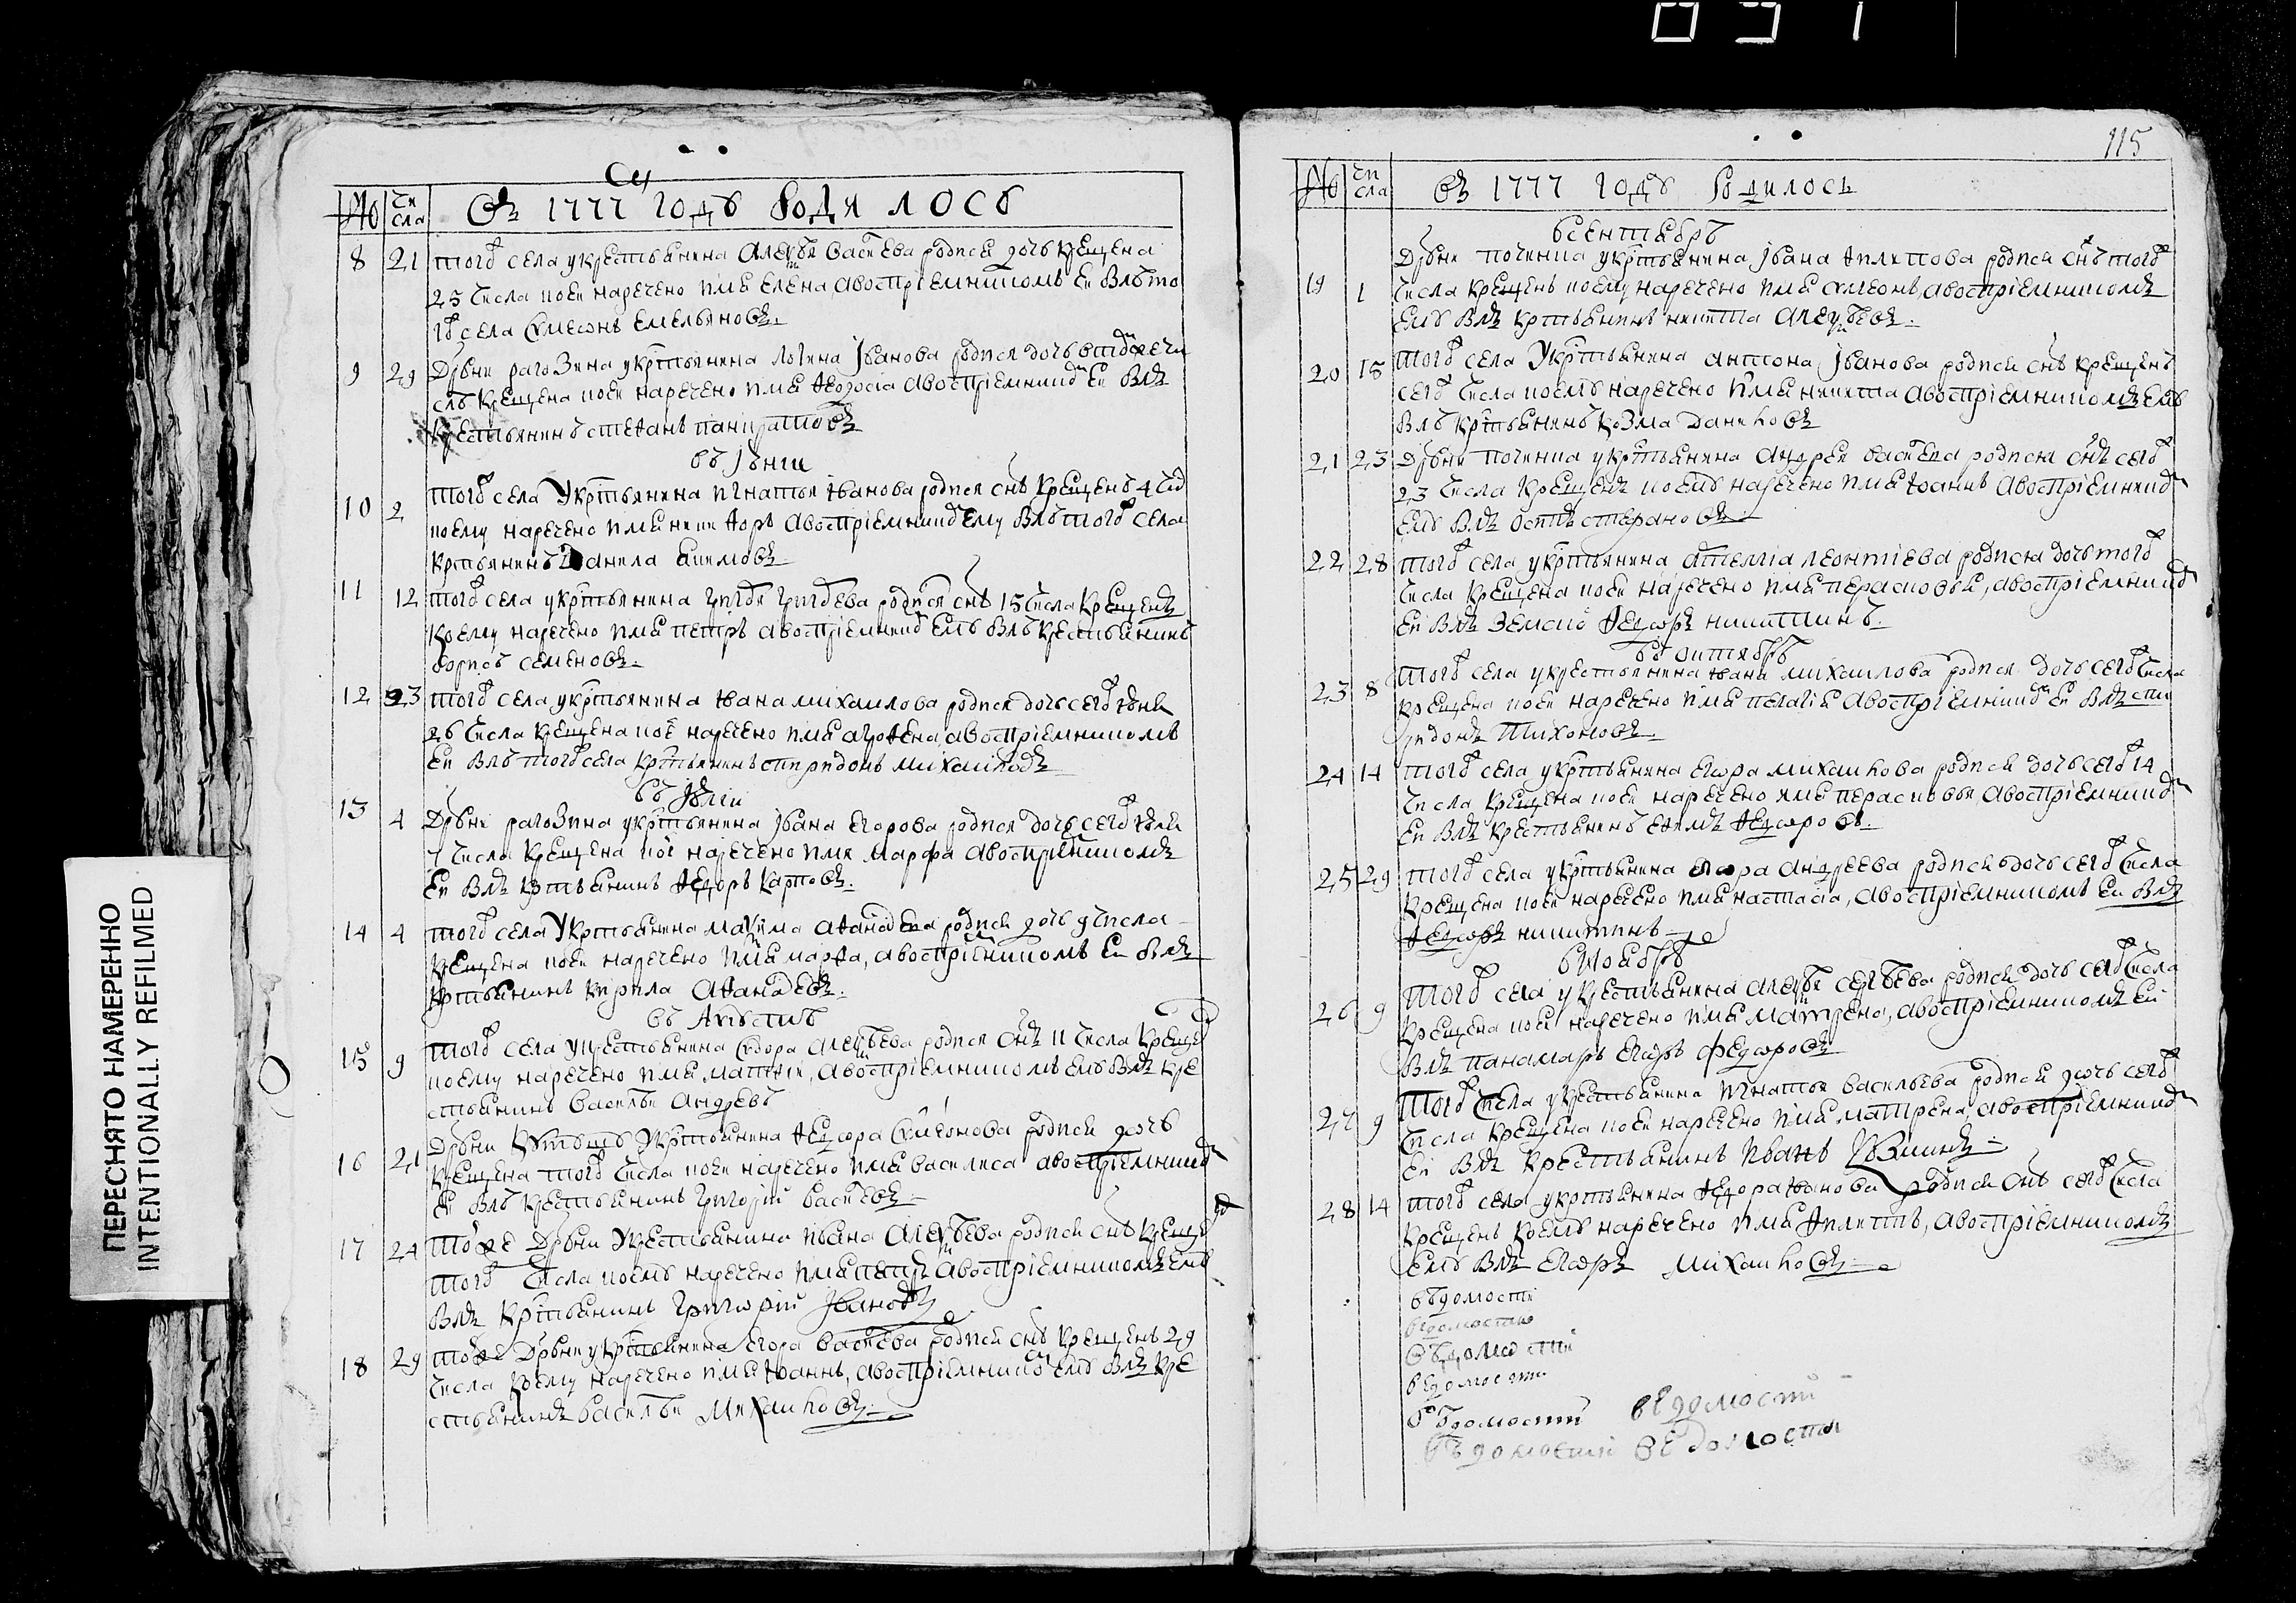 115
№ чи сла въ 1777 годѣ родилось
8 21 того села у крестьянина алеѯѣя васиева родися дочь крещена
25 числа коеи наречено имя елена, авоспрiемникомъ еи былъ то
го села сѵмеонъ емельяновъ.
9 29 дрвни рагозина у кртьянина логина иванова родися дочь
крещена коеи наречено имя ѳеодосiа авоспрiемнико еи былъ
крестьянинъ стеѳанъ панкратовъ
въ iюнiи
10 2 того села у кртьянина игнатья иванова родися снъ крещенъ 4 чис
коему наречено имя никиѳоръ авоспрiемнико ему былъ того села
кртьянинъ данила екимовъ
11 12 того села у кртьянина григоя григоева родися снъ 15 числа крещенъ
коему наречено имя петръ авоспрiемнико емȣ былъ крестьянинъ
борисъ семеновъ.
12 23 того села у кртьянина ивана михаилова родися дочь сего iюня
26 числа крещена кое наречено имя агроѳена, авоспрiемникомъ
еи былъ того села кртьянинъ спиридонъ михаиловъ
въ iюлiи
13 4 дрвни рагозина у кртьянина iвана егорова родися дочь сего iюля
7 числа крещена кое наречено имя марфа авоспрiемникомъ
еи былъ кртьянинъ ѳедоръ карповъ.
14 4 того села у кртьянина маѯима аѳанаева родися дочь 9 числа
крещена коеи наречено имя марѳа, авоспрiемникомъ еи былъ
кртьянинъ кирила аѳанаевъ.
въ августѣ
15 9 того села у крестьянина сидора алеѯѣева родися снъ 11 числа креще
коему наречено имя матѳеи, авоспрiемникомъ емȣ былъ кре
стьянинъ василеи андреевъ
16 21 дрвни у кртьянина ѳедора сѵмеонова родися дочь
крещена того числа коеи наречено имя василиса авоспрiемнико
еи былъ крестьянинъ григорiи васиевъ
17 24 тоже дрвни у крестьянина ивана алеѯѣева родися снъ креще
того числа коемȣ наречено имя петръ авоспрiемникомъ емȣ
былъ кртьянинъ григорiи iвановъ
18 29 тоже дрвни у кртьянина егора васиева родися снъ крещенъ 29
числа коему наречено имя iоаннъ, авоспрiемнико емȣ былъ кре
стьянинъ василеи михаиловъ
№ чи сла въ 1777 годѣ родилось
в сентябрѣ
19 1 дрвни починка у кртьянина iвана ѳилипова родися снъ того
числа крещенъ коему наречено имя сѵмеонъ, авоспрiемникомъ
емȣ былъ кртьянинъ никита алеѯѣевъ.
20 15 того села у кртьянина антона iванова родися снъ крещенъ
сего числа коемȣ наречено имя никита авоспрiемникомъ емȣ
былъ кртьянинъ козма даниловъ
21 23 дрвни починка у кртьянина андрея васиева родися снъ сего
23 числа крещенъ коемȣ наречено имя iоаннъ авоспрiемнико
емȣ былъ осипъ степановъ
22 28 того села у кртьянина леонтiева родися дочь того
числа крещена коеи наречено имя перасковья, авоспрiемнико
еи былъ земско ѳедоръ никитинъ.
въ октябрѣ
23 8 того села у крестьянина ивана михаилова родися дочь сего числа
крещена коеи наречено имя пелагiя авоспрiемнико еи былъ спи
ридонъ тихоновъ.
24 14 того села у кртьянина егора михаилова родися дочь сего 14
числа крещена коеи наречено имя перасковья, авоспрiемнико
еи былъ крестьянинъ ефимъ ѳедоровъ.
25 29 того села у кртьянина егора андреева родися дочь сего числа
крещена коеи наречено имя настасiа, авоспрiемникомъ еи былъ
ѳедоръ никитинъ
в ноябрѣ
26 9 того села у крестьянина алеѯѣя сергѣева родися дочь сего числа
крещена коеи наречено имя матрена, авоспрiемникомъ еи
былъ панамарь егоръ федоровъ
27 9 того села у крестьянина игнатья васильева родися дочь сего
числа крещена коеи наречено имя матрена, авоспрiемнико
еи былъ крестьянинъ иванъ
28 14 того села у кртьянина ѳедора иванова родися снъ сего числа
крещенъ коемȣ наречено имя ѳилиппъ, авоспрiемникомъ
емȣ былъ егоръ михаиловъ
вѣдомости
ведомости
вѣдомости
ведомости
вѣдомости ведомости
вѣдомости ведомости
ПЕРЕСНЯТО НАМЕРЕННО
INTENTIONALLY REFILMED